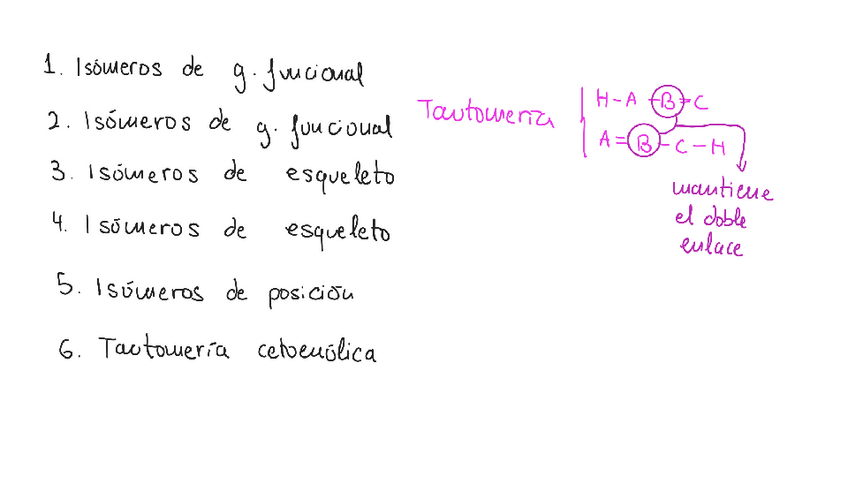 1. Isómeros de g. funcional
2. Isómeros de g. funcional
3. Isómeros de esqueleto
4. Isómeros de esqueleto
5. Isómeros de posición
6. Tautomería cetoenólica
Tautomería
H-A-B=C
A=B-C-H
mantiene
el doble
enlace